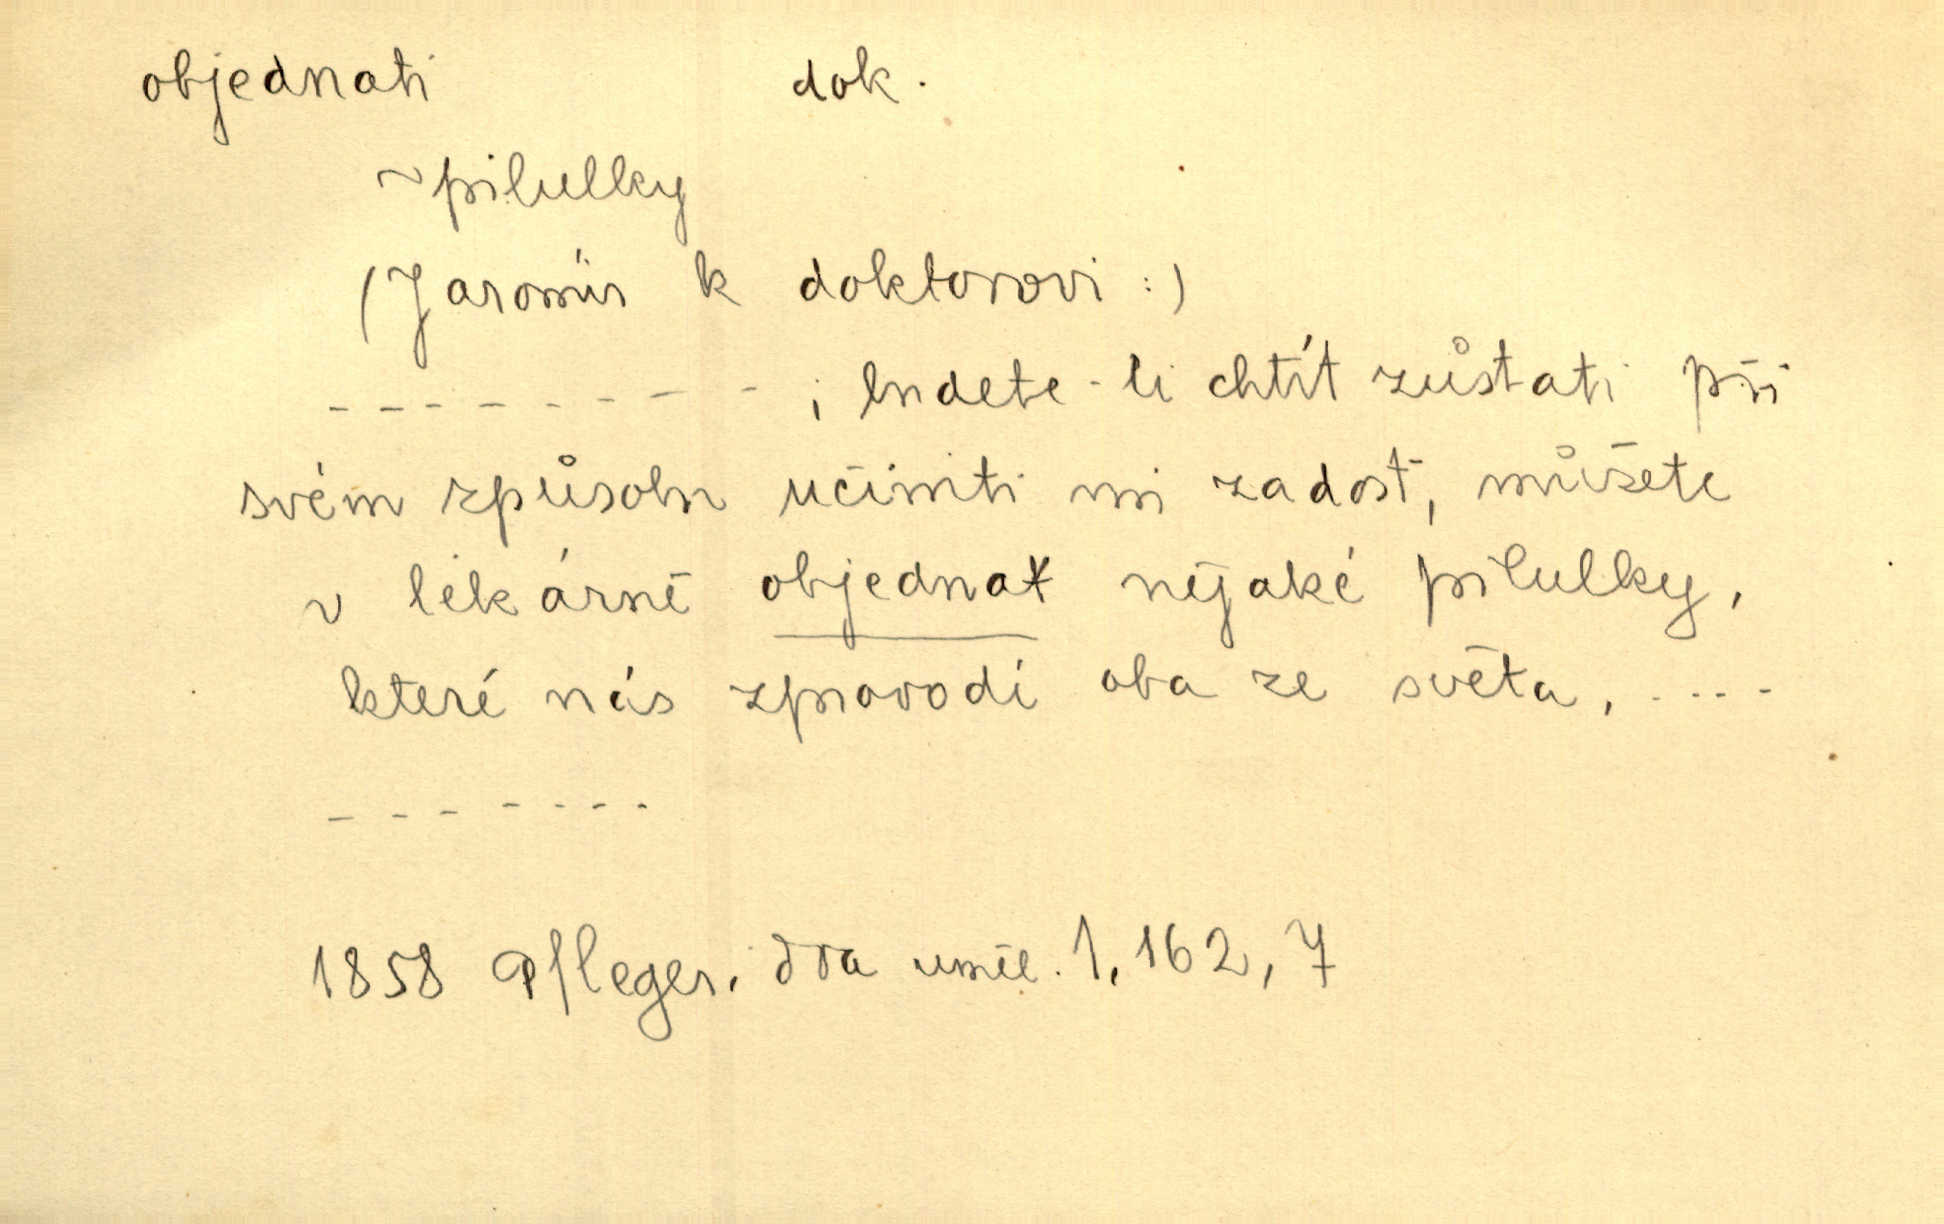 objednati dok.
~ pilulky
(Jaromír k doktorovi:)
- - - - - - - - - ; budete-li chtít zůstati při
svém způsobu učiniti mi zadosť, můžete
v lékárně objednat nějaké pilulky,
které nás zprovodí oba ze světa, . - - -
- - - - - - -
1858 Pfleger, Dva uměl. 1, 162, 7